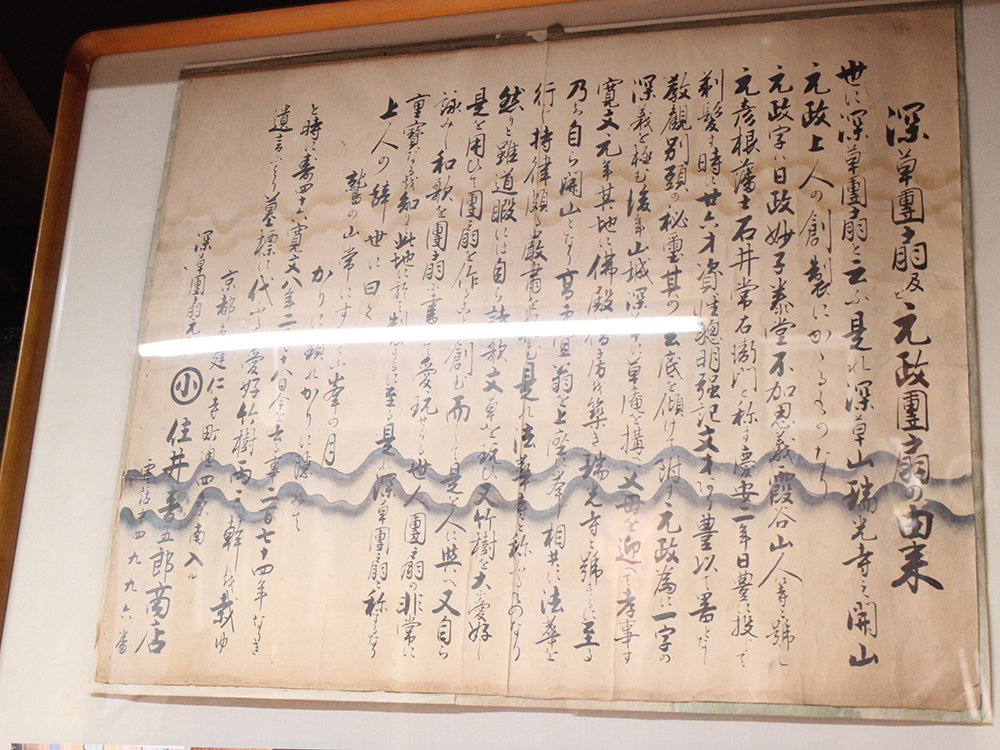 深草團扇及ビ元政團扇の由来
世に深草團扇と云ふ是れ深草山瑞光寺之開山
元政上人の創製にかゝるものなり
元政字ハ日政妙子泰堂不加思義霞谷山人等と號し
元彦根藩士石井常右衞門と称す慶安二年日豊に投して
剃髪す時に廿六才資生聰明强記文才あり豊以て署となし
教觀別頭の秘璽其の玄底を傾けて附す元政為に一字の
深義を極む後年山城深草に草庵を構へ父母を迎へて孝事す
寛文元年其地に佛殿僧房を築き瑞光寺と號するに至る
乃ち自ら開山となり
行し持律頗る嚴肅を 是れ法華寺と称ふるものなり
然りと雖道暇には自ら詩歌文章を玩ひ又竹樹を大に愛好し
是を用ひて團扇を作ることを創む而して是を人に與へ又自ら
詠みし和歌を團扇に書きて愛玩せらる世人團扇の非常に
重寶なるを知り此地に於て製するに至る是れ深草團扇と称すなり
上人の辞世に曰く
鷲の山常にすむてふ峯の月
かりに現れかりに隠れて
と時に壽四十六寛文八年二月十八日今を去る事二百七十四年なりき
遺言により墓標に代ふるに愛好竹樹両三幹しを栽ゆ
京都市建仁寺町通四条南入ル
深草團扇元
小 住井喜五郎商店
電話 四九九六番